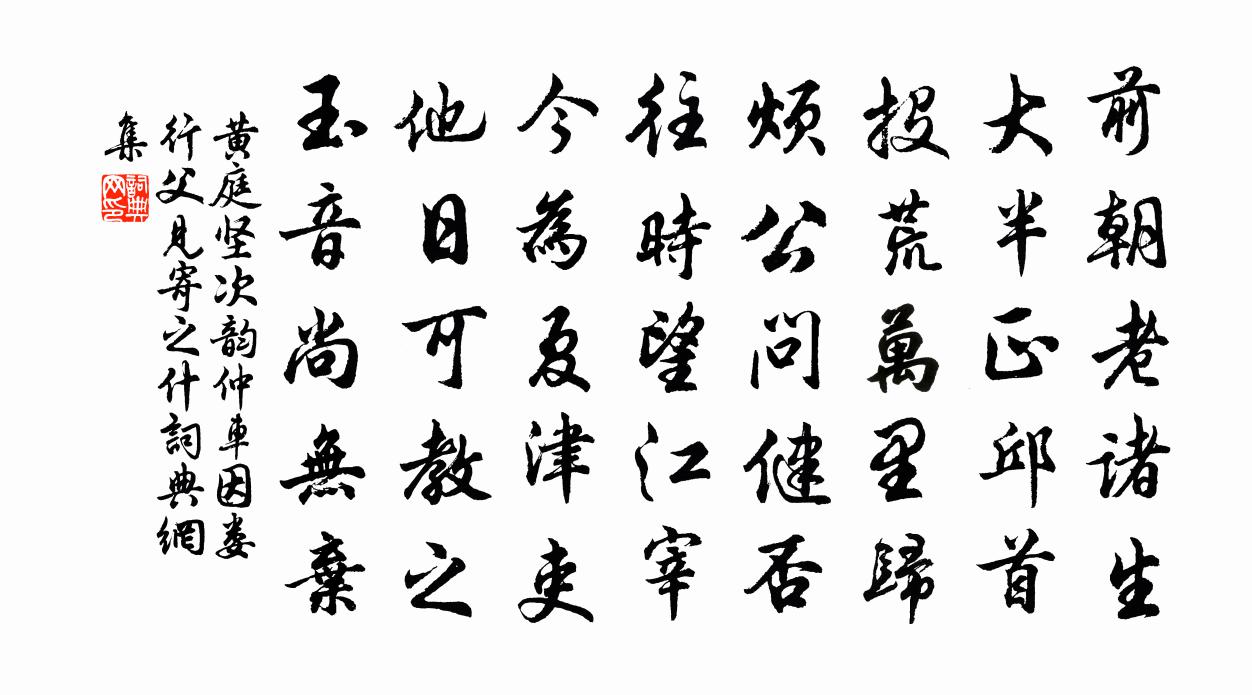 前朝老诸生
大半正邱首
投荒萬里歸
煩公問健否
往時望江宰
今為夏津吏
他日可教之
玉音尚無棄
黄庭坚次韵仲車因娄
行父見寄之什詞典網
集
詞典網印